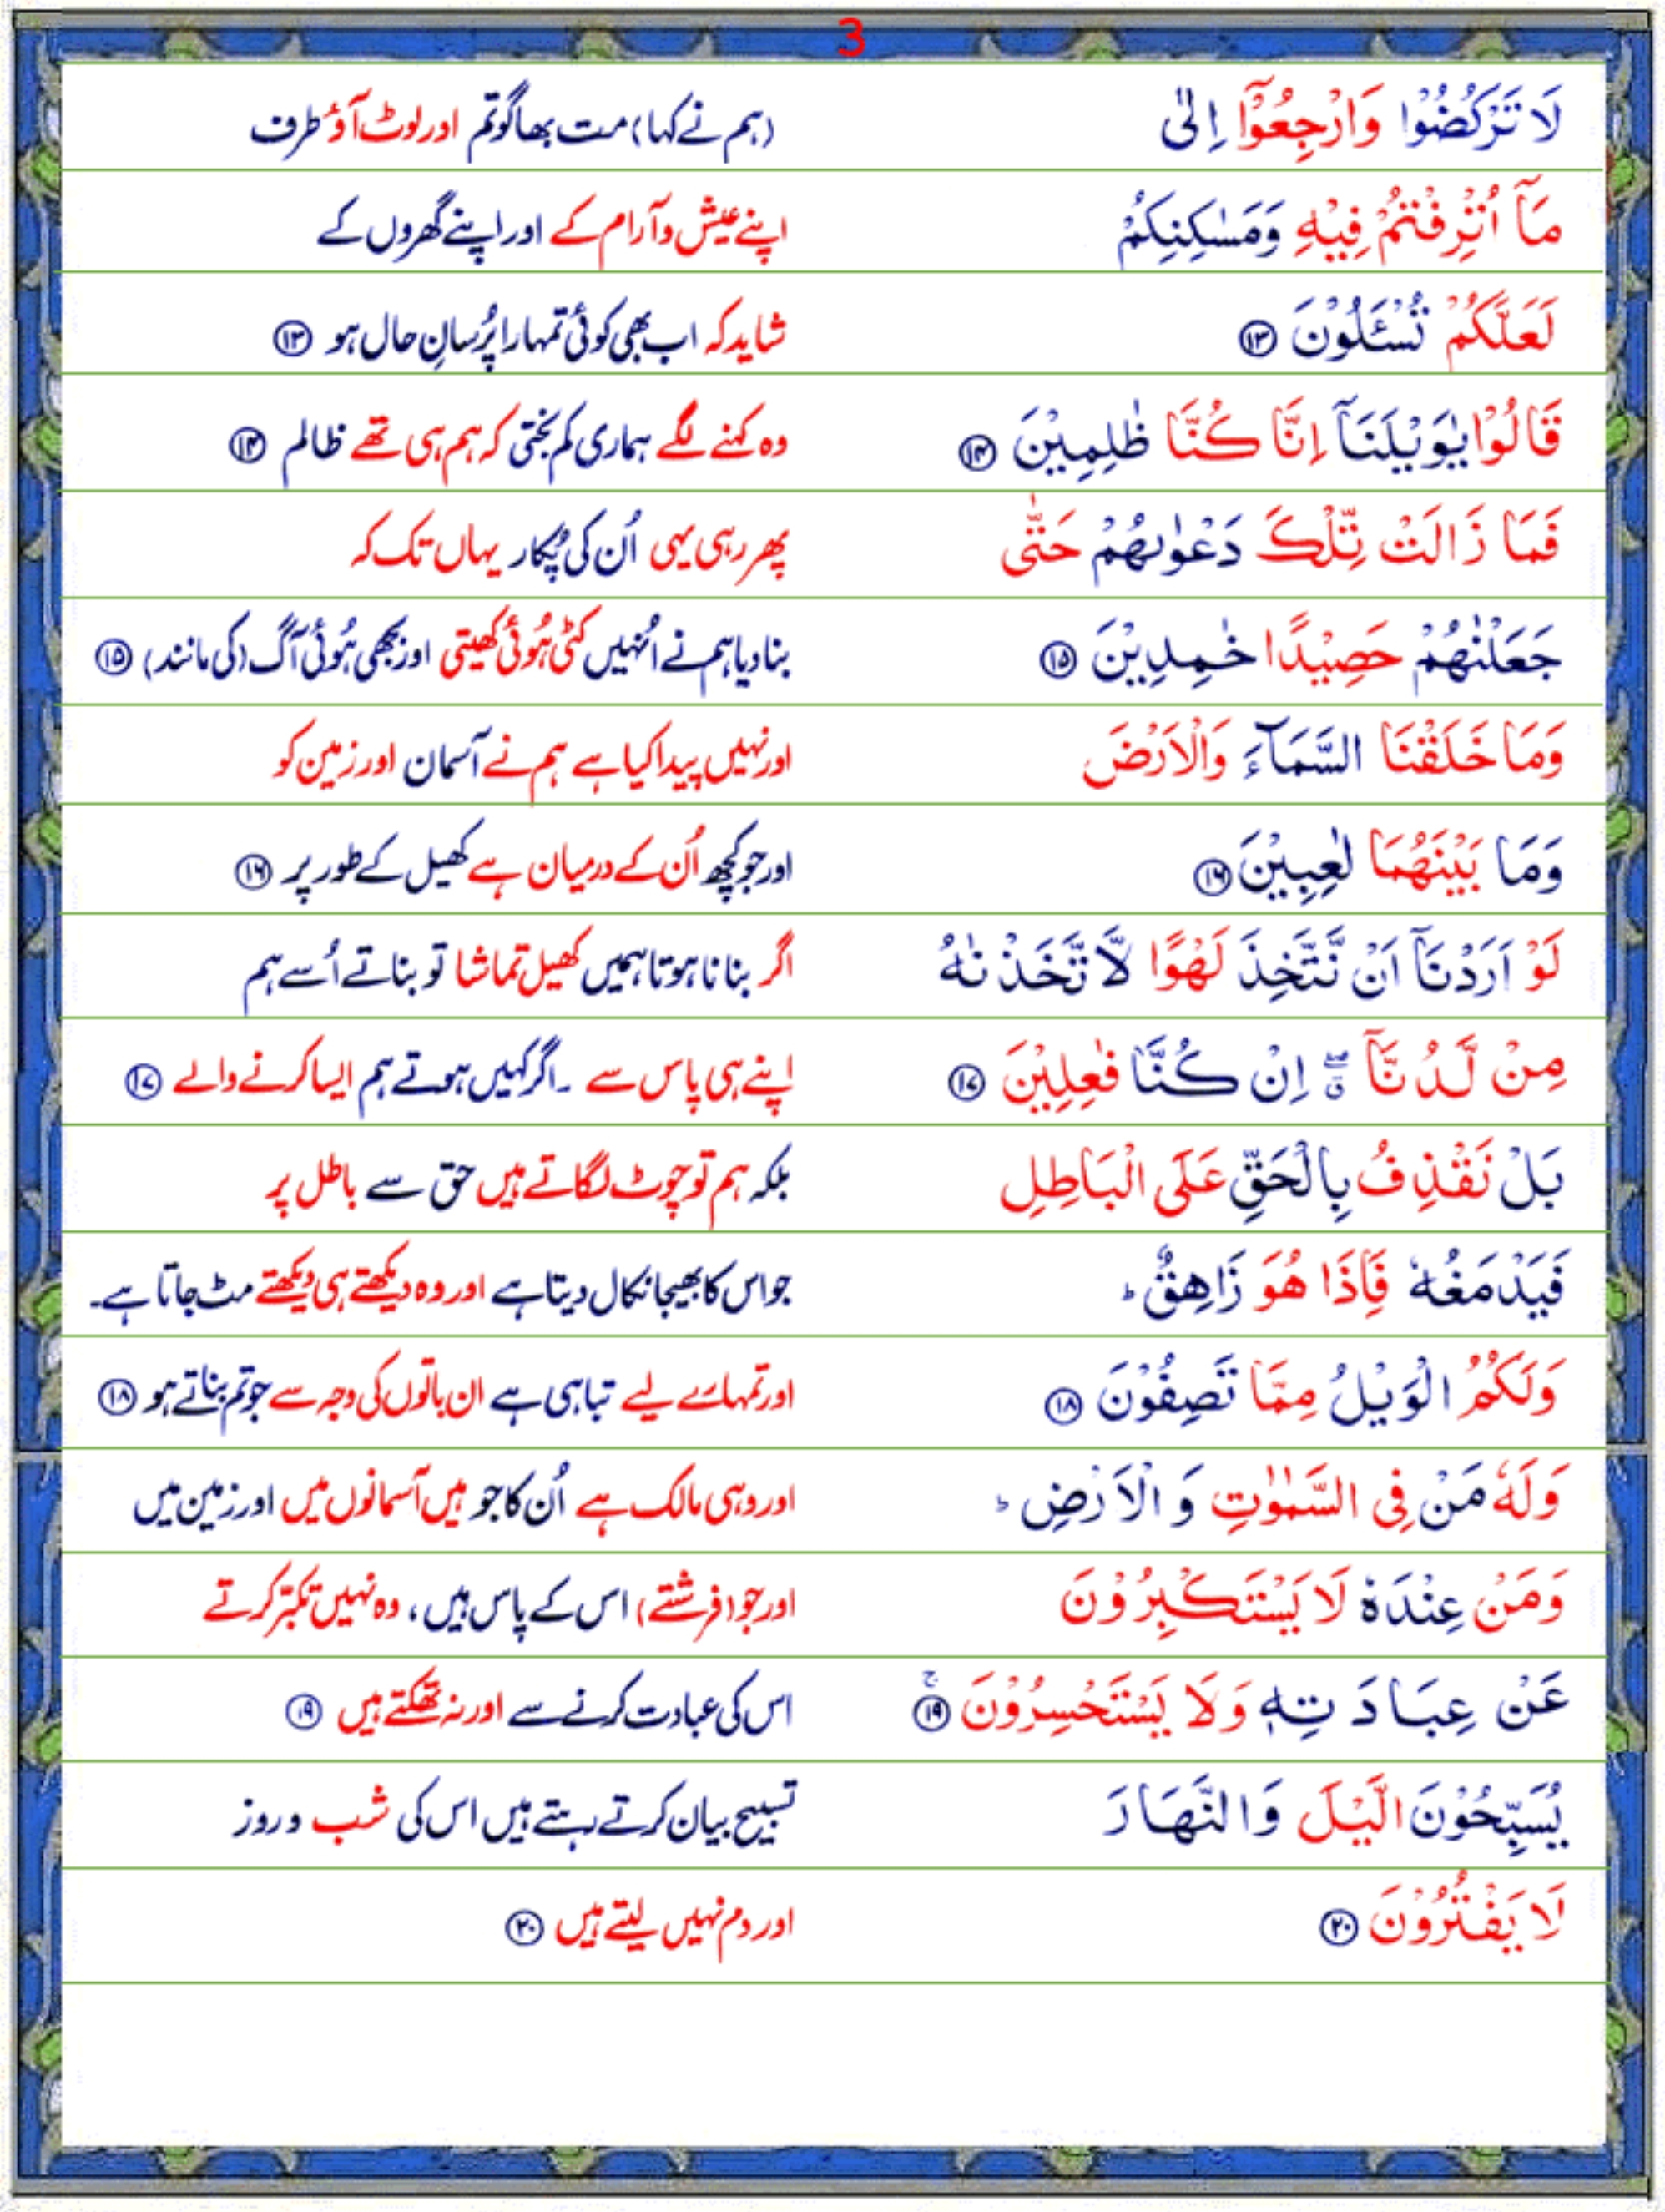 3
لَا تَرْكُضُوْا وَارْجِعُوْٓا اِلٰی (ہم نے کہا) مت بھاگو تم اور لوٹ آؤ طرف
مَآ اُتْرِفْتُمْ فِيْهِ وَمَسٰكِنِكُمْ اپنے عیش و آرام کے اور اپنے گھروں کے
لَعَلَّكُمْ تُسْـَٔلُوْنَ ⑬ شاید کہ اب بھی کوئی تمہارا پُرسانِ حال ہو ⑬
قَالُوْا يٰوَيْلَنَآ اِنَّا كُنَّا ظٰلِمِيْنَ ⑭ وہ کہنے لگے ہماری کم بختی کہ ہم ہی تھے ظالم ⑭
فَمَا زَالَتْ تِّلْكَ دَعْوٰىهُمْ حَتّٰى پھر رہی یہی اُن کی پُکار یہاں تک کہ
جَعَلْنٰهُمْ حَصِيْدًا خٰمِدِيْنَ ⑮ بنا دیا ہم نے اُنہیں کٹی ہُوئی کھیتی اور بجھی ہُوئی آگ (کی مانند) ⑮
وَمَا خَلَقْنَا السَّمَآءَ وَالْاَرْضَ اور نہیں پیدا کیا ہے ہم نے آسمان اور زمین کو
وَمَا بَيْنَهُمَا لٰعِبِيْنَ ⑯ اور جو کچھ اُن کے درمیان ہے کھیل کے طور پر ⑯
لَوْ اَرَدْنَآ اَنْ نَّتَّخِذَ لَهْوًا لَّا تَّخَذْنٰهُ اگر بنانا ہوتا ہمیں کھیل تماشا تو بناتے اُسے ہم
مِنْ لَّدُنَّآ ۖۗ اِنْ كُنَّا فٰعِلِيْنَ ⑰ اپنے ہی پاس سے ۔ اگر کہیں ہوتے ہم ایسا کرنے والے ⑰
بَلْ نَقْذِفُ بِالْحَقِّ عَلَى الْبَاطِلِ بلکہ ہم تو چوٹ لگاتے ہیں حق سے باطل پر
فَيَدْمَغُهٗ فَاِذَا هُوَ زَاهِقٌ ؕ جو اس کا بھیجا نکال دیتا ہے اور وہ دیکھتے ہی دیکھتے مٹ جاتا ہے۔
وَلَكُمُ الْوَيْلُ مِمَّا تَصِفُوْنَ ⑱ اور تمہارے لیے تباہی ہے ان باتوں کی وجہ سے جو تم بناتے ہو ⑱
وَلَهٗ مَنْ فِى السَّمٰوٰتِ وَ الْاَرْضِ ؕ اور وہی مالک ہے اُن کا جو ہیں آسمانوں میں اور زمین میں
وَمَنْ عِنْدَهٗ لَا يَسْتَكْبِرُوْنَ اور جو (فرشتے) اس کے پاس ہیں، وہ نہیں تکبّر کرتے
عَنْ عِبَادَتِهٖ وَلَا يَسْتَحْسِرُوْنَ ۚ⑲ اس کی عبادت کرنے سے اور نہ تھکتے ہیں ⑲
يُسَبِّحُوْنَ الَّيْلَ وَالنَّهَارَ تسبیح بیان کرتے رہتے ہیں اس کی شب و روز
لَا يَفْتُرُوْنَ ⑳ اور دم نہیں لیتے ہیں ⑳